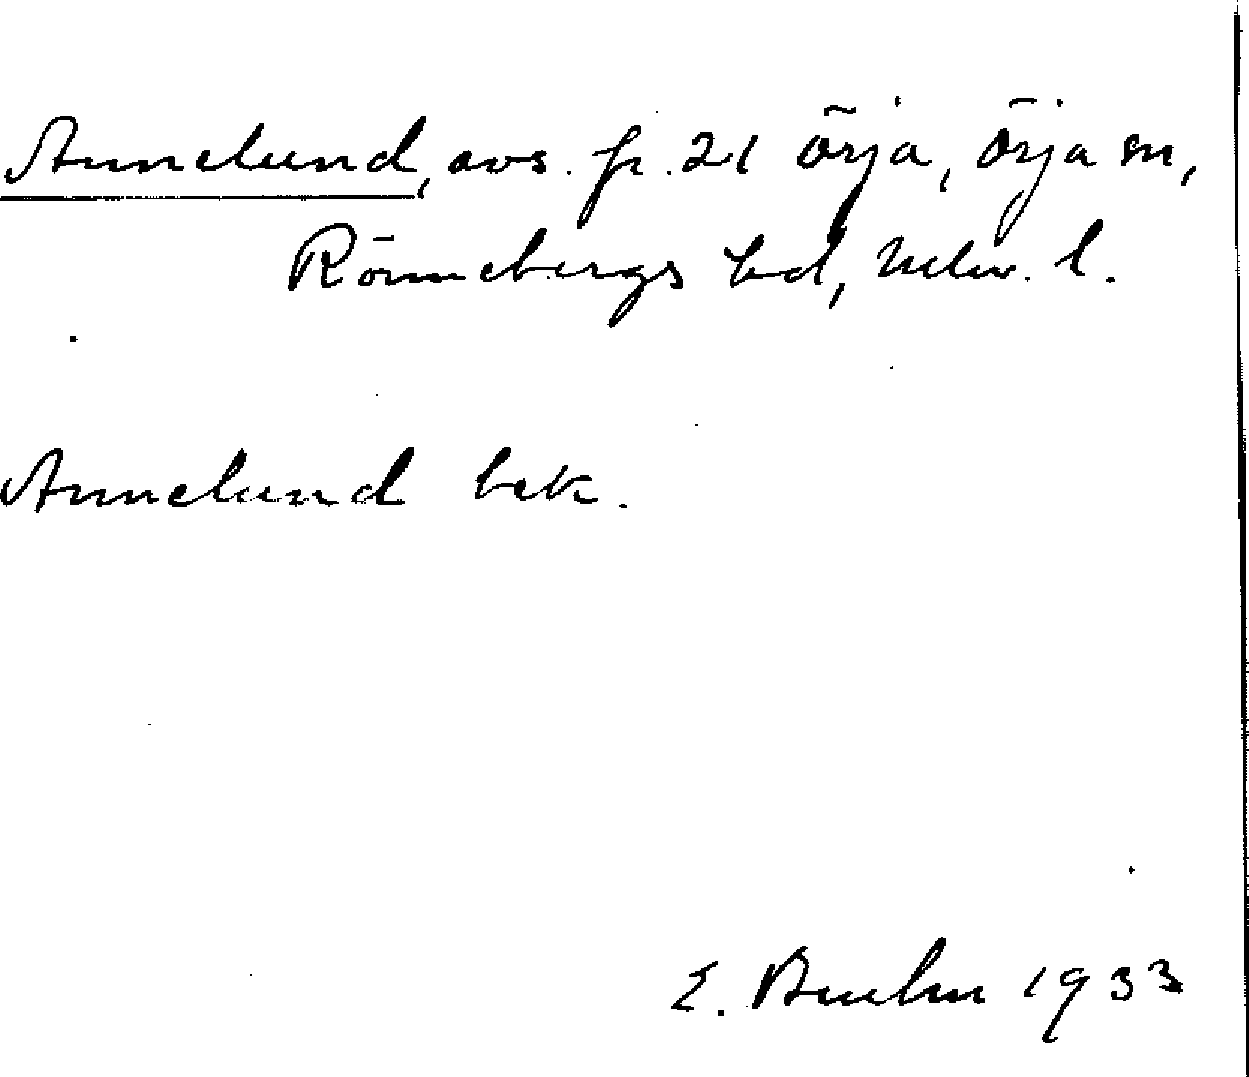 Annelund, avs. fr. 21 Örja, Örja sn,
Rönnebergs hd, Mlm. l.
Annelund bek.
E. 1933